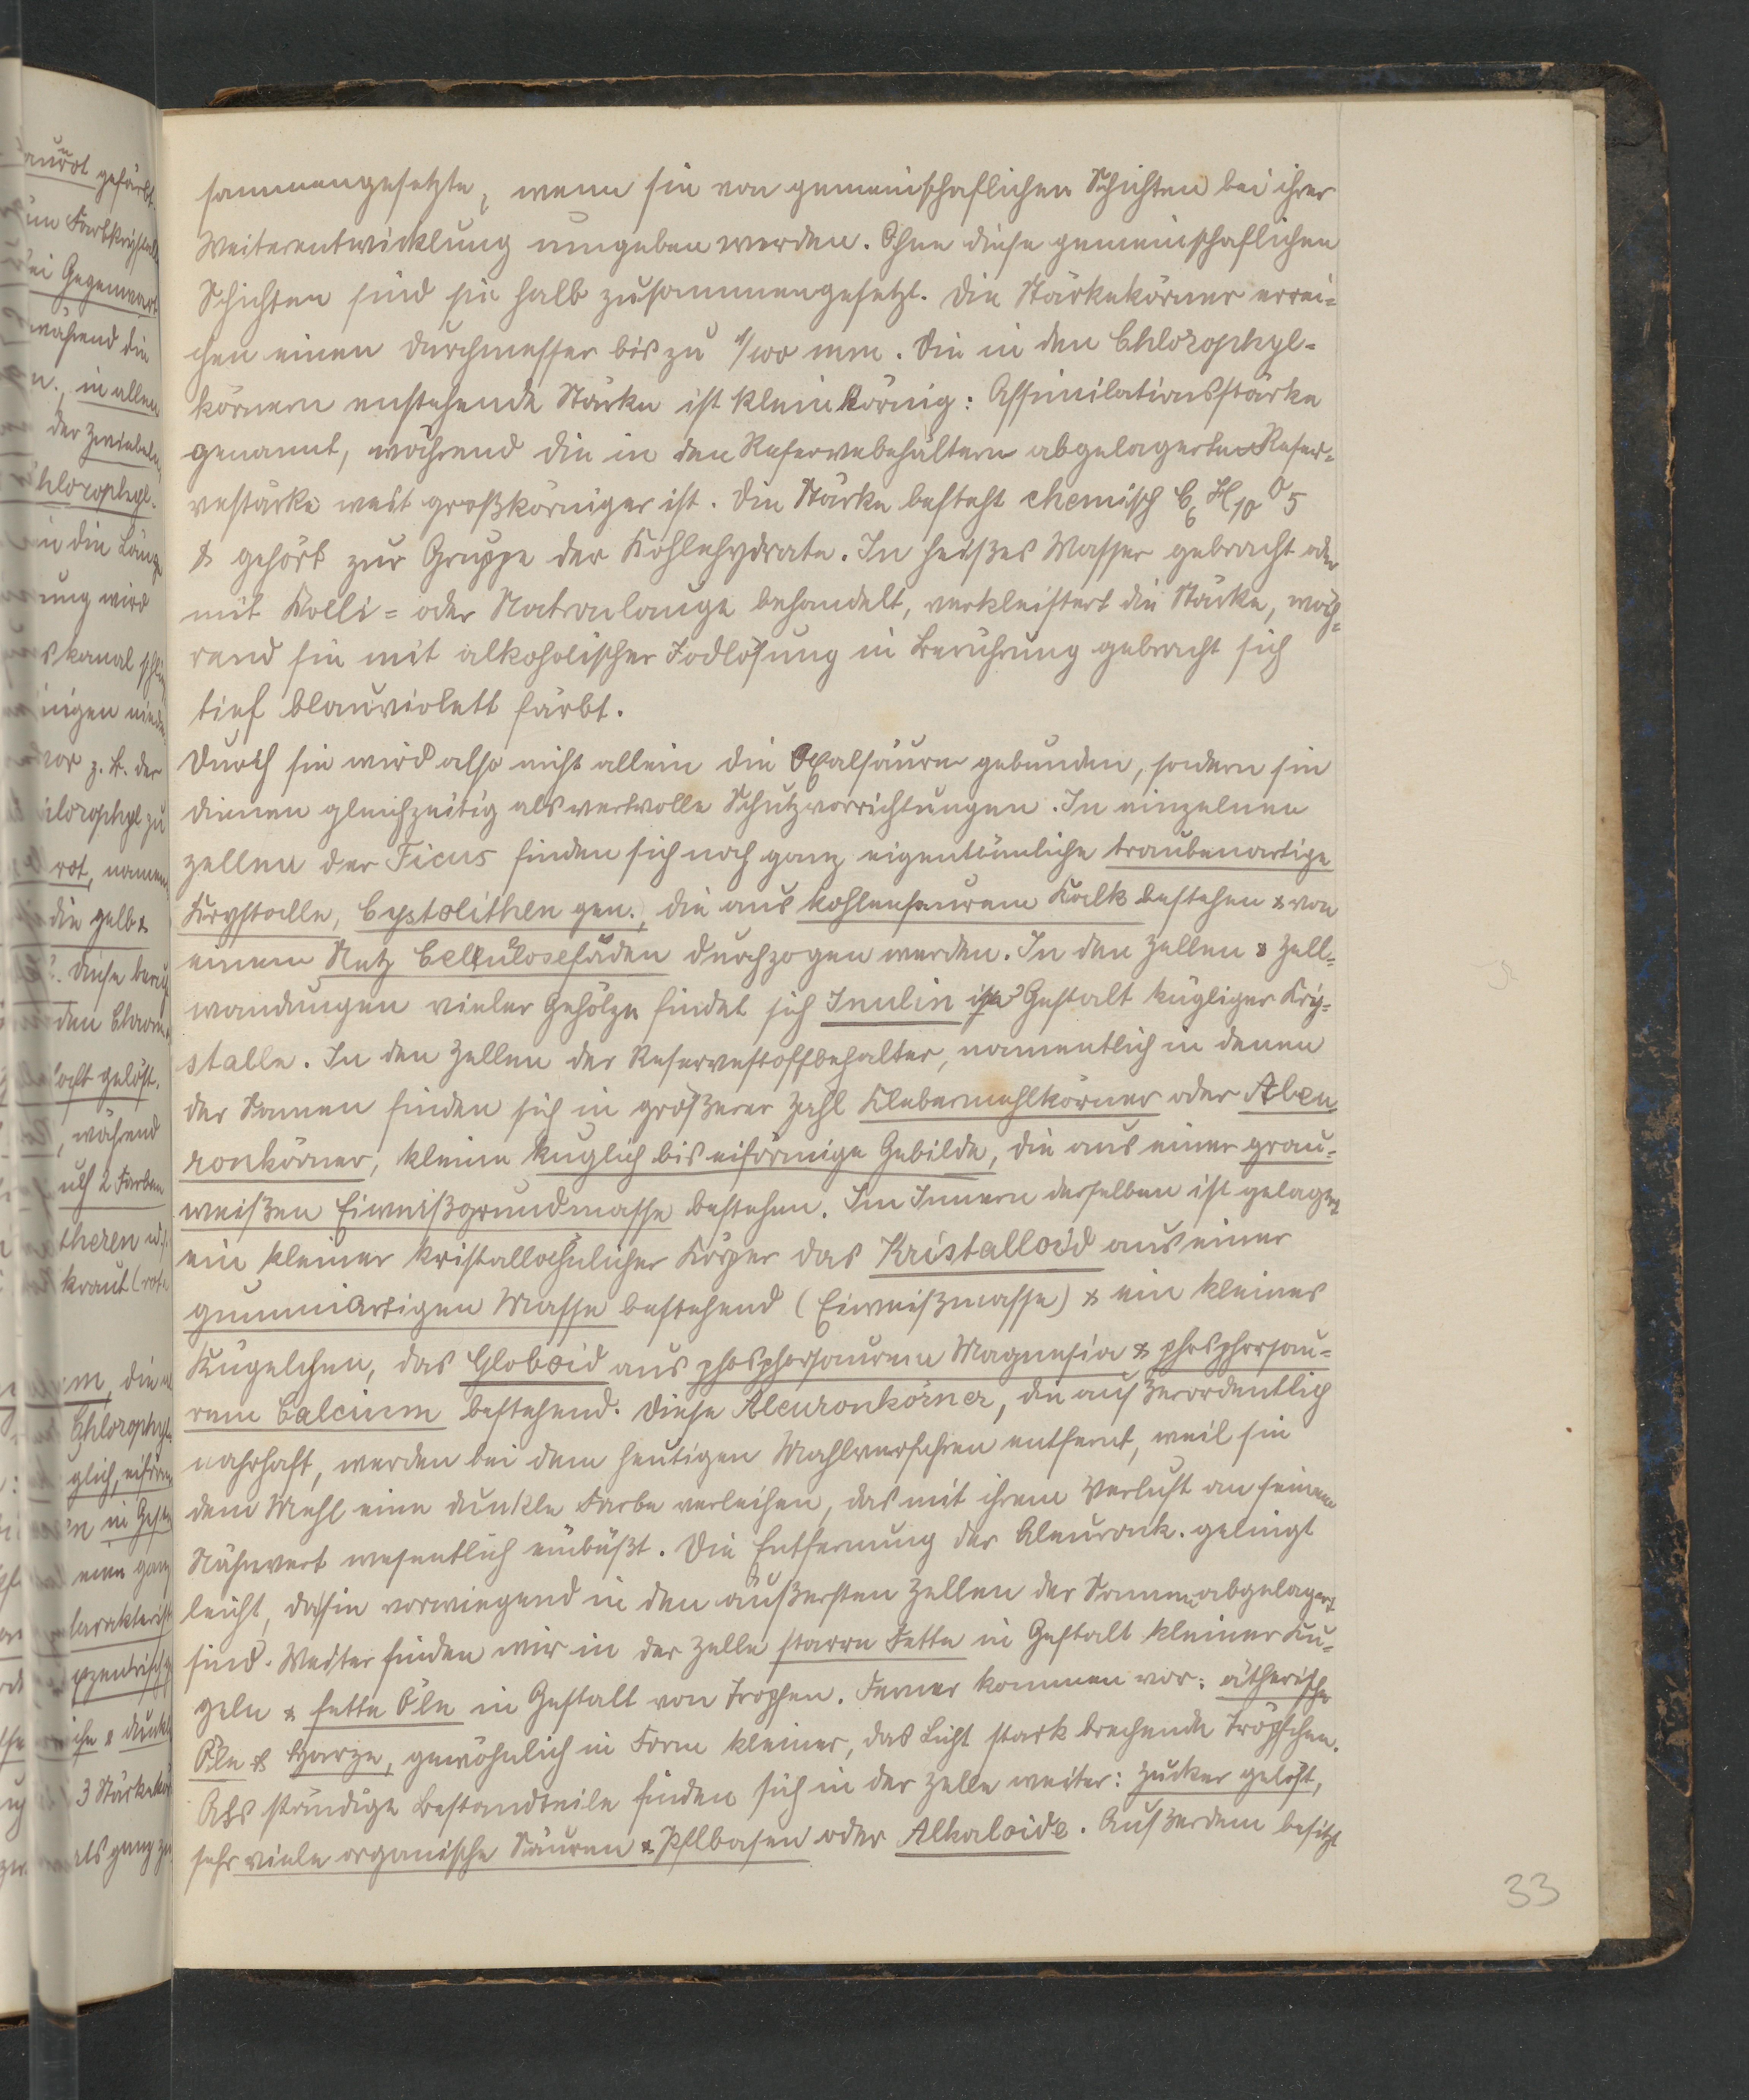 sammengesetzte, wenn sie von gemeinschaflichen Schichten bei ihrer
Weiterentwicklung umgeben werden. Ohne diese gemeinschaflichen
Schichten sind sie halb zusammengesetzt. Die Stärkekörner errei=
chen einen Durchmesser bis zu 1/100 mm. Die in den Chlorophyl=
körnern enstehende Stärke ist kleinkörnig: Assimilationsstärke
genannt, während die in den Reservebehältern abgelagerte Reser=
vestärke weit großkörniger ist. Die Stärke besteht chemisch C6 H10 O5
& gehört zur Gruppe der Kohlehydrate. In heißes Wasser gebracht oder
mit Kali= oder Natronlauge behandelt, verkleistert die Stärke, wäh=
rend sie mit alkoholischer Jodlösung in Berührung gebracht sich
tief blauviolett färbt.
Durch sie wird also nicht allein die Oxalsäure gebunden, sondern sie
dienen gleichzeitig als wertvolle Schutzvorrichtungen. In einzelnen
Zellen der Ficus finden sich noch ganz eigentümliche traubenartige
Krystalle, Cystolithen gen., die aus kohlensaurem Kalk bestehen & von
einem Netz Cellulosefäden durchzogen werden. In den Zellen & Zell=
wandungen vieler Gehölze findet sich Inulin in Gestalt kugliger Kry=
stalle. In den Zellen der Reservestoffbehalter, namentlich in denen
der Samen finden sich in größerer Zahl Klebermehlkörner oder Aleu=
ronkörner, kleine kuglich bis eiförmige Gebilde, die aus einer grau=
weißen Eiweißgrundmasse bestehen. Im Innern derselben ist gelagert
ein kleiner kristallähnlicher Körper das Kristalloid aus einer
gummiartigen Masse bestehend (Eiweißmasse) & ein kleines
Kügelchen, das Globoid aus phosphorsaurem Magnesia & phosphorsau=
rem Calcium bestehend. Diese Aleuronkörner, die außerordentlich
nahrhaft, werden bei dem heutigen Mahlverfahren entfernt, weil sie
dem Mehl eine dunkle Farbe verleihen, das mit ihrem Verlust an seinem
Nährwert wesentlich einbüßt. Die Entfernung der Aleuronk. gelingt
leicht, da sie vorwiegend in den äußersten Zellen der Samen abgelagert
sind. Weiter finden wir in der Zelle starre Fette in Gestalt kleiner Ku=
geln & fette Öle in Gestalt von Tropfen. Ferner kommen vor: ätherische
Öle & Harze, gewöhnlich in Form kleiner, das Licht stark brechende Tröpfchen.
Als ständige Bestandteile finden sich in der Zelle weiter: Zucker gelöst,
sehr viele organische Säuren & Pflbasen oder Alkaloide. Außerdem besitzt
33